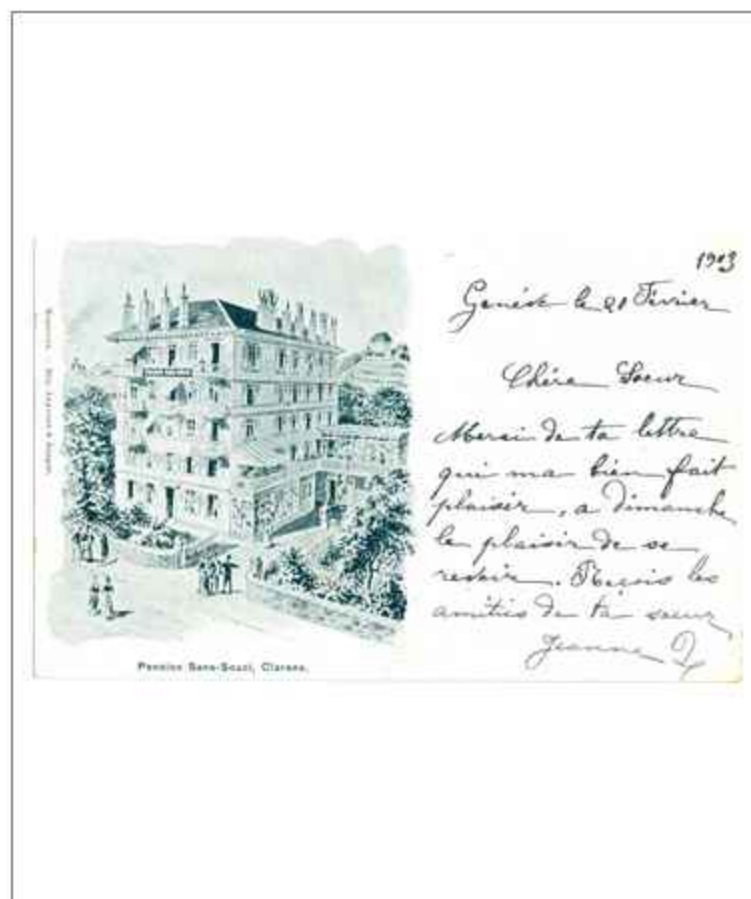 1903
Genève le 20 Février
Chère Soeur
Merci de ta lettre
qui ma bien fait
plaisir, a dimanche
le plaisir de se
revoir. Reçois les
amitiés de ta soeur
Jeanne
Pension Sans-Souci, Clarens.